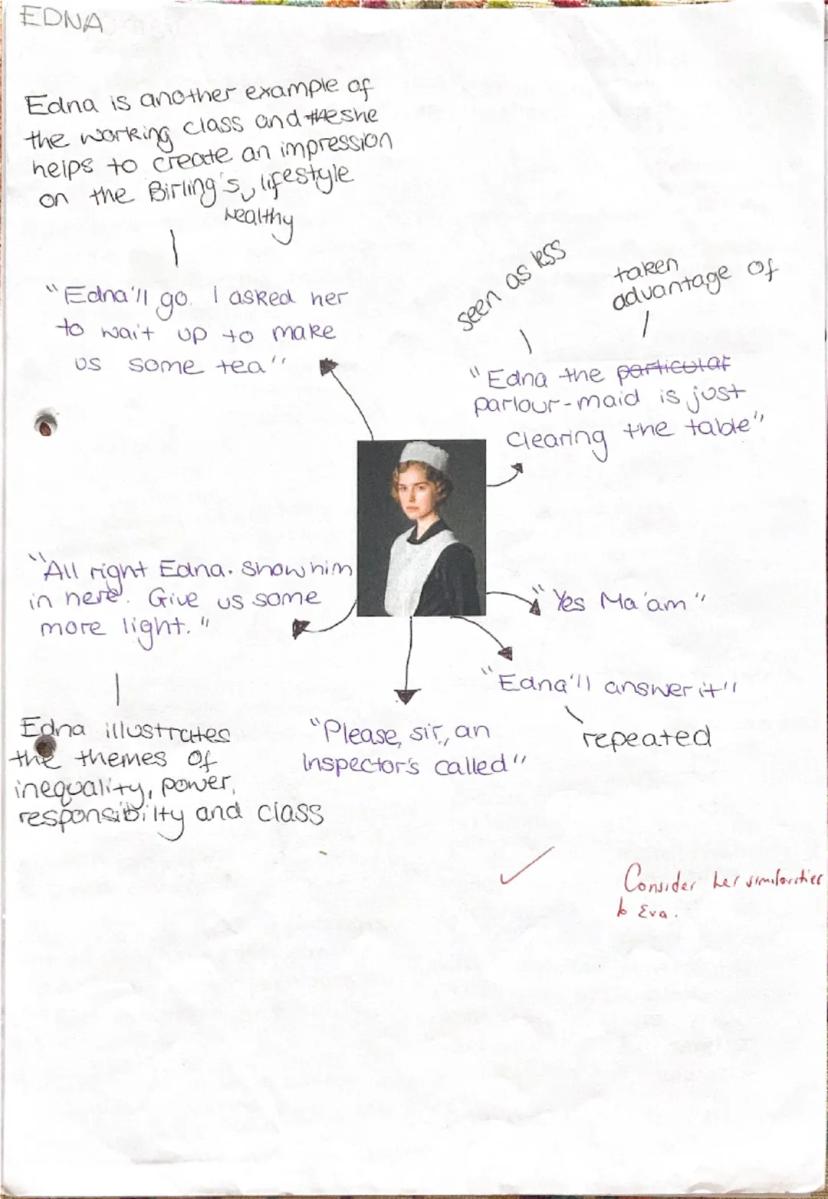 EDNA
Edna is another example of
the working class and the she
helps to create an impression
on the Birling's lifestyle
wealthy
"Edna'll go. I asked her
to wait up to make
us some tea"
seen as lss
taken
advantage of
"Edna the particular
parlour-maid is just
clearing the table"
"All right Edna. Show him
in here. Give us some
more light."
"Yes Ma'am"
"Edna'll answer it"
repeated
"Please, sir, an
Inspector's called"
Edna illustrates
the themes of
inequality, power,
responsibilty and class
Consider her similarities
to Eva.